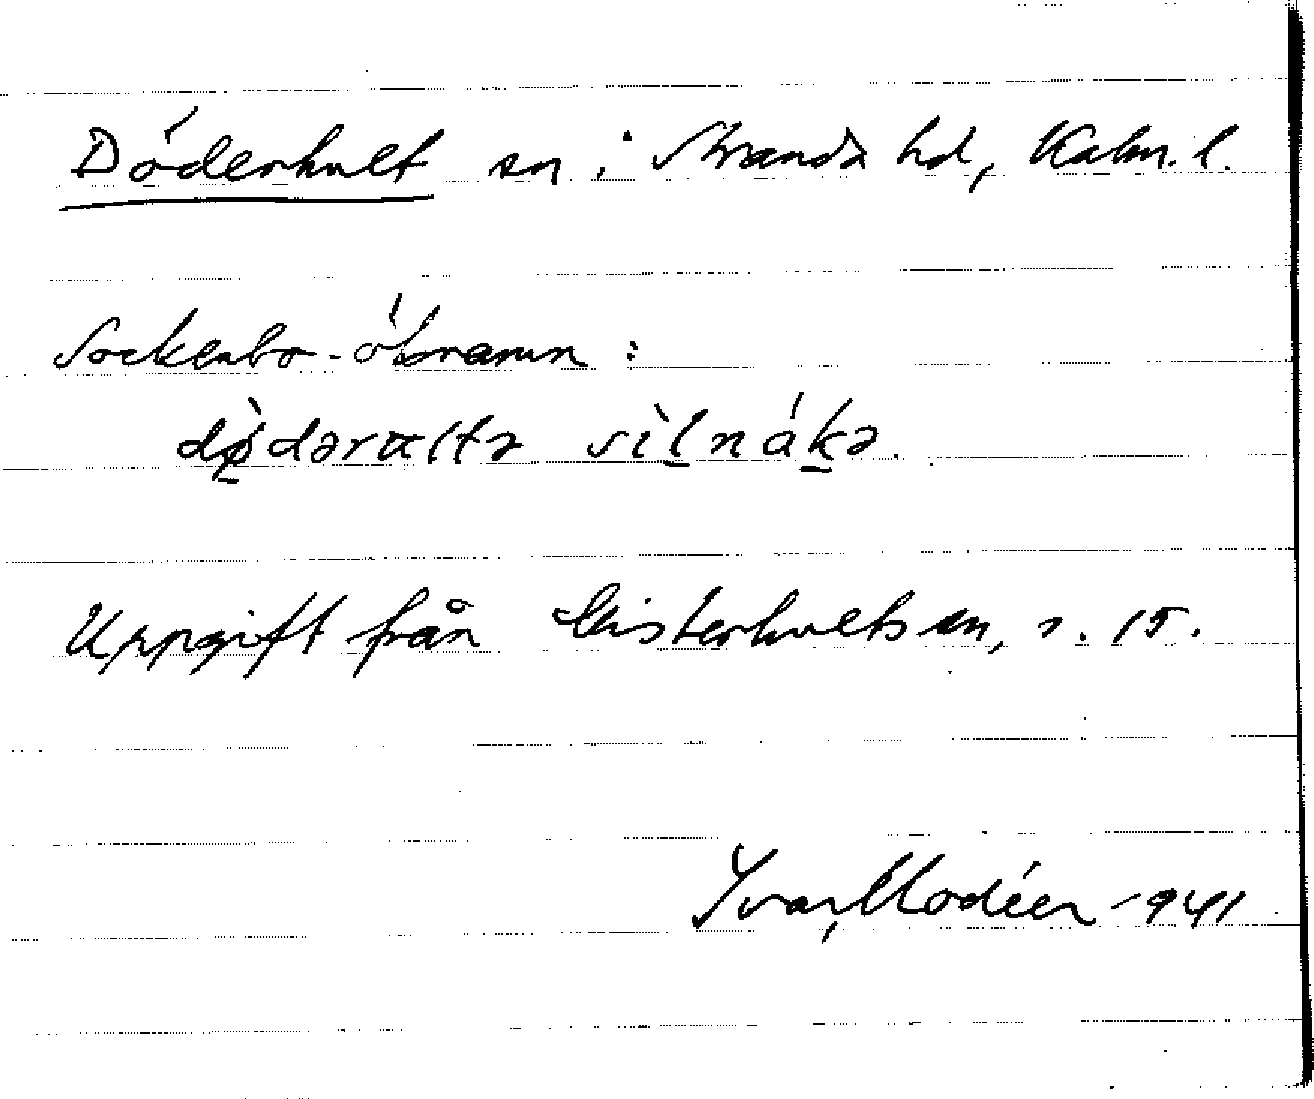 Döderhult sn i Stranda hd, Kalm. l.
Sockenbo-öknamn:
dø̀dəra(ltə sìl̠náḵə.
Uppgift från Misterhults sn, s. 15.
Yvar Modéer -941